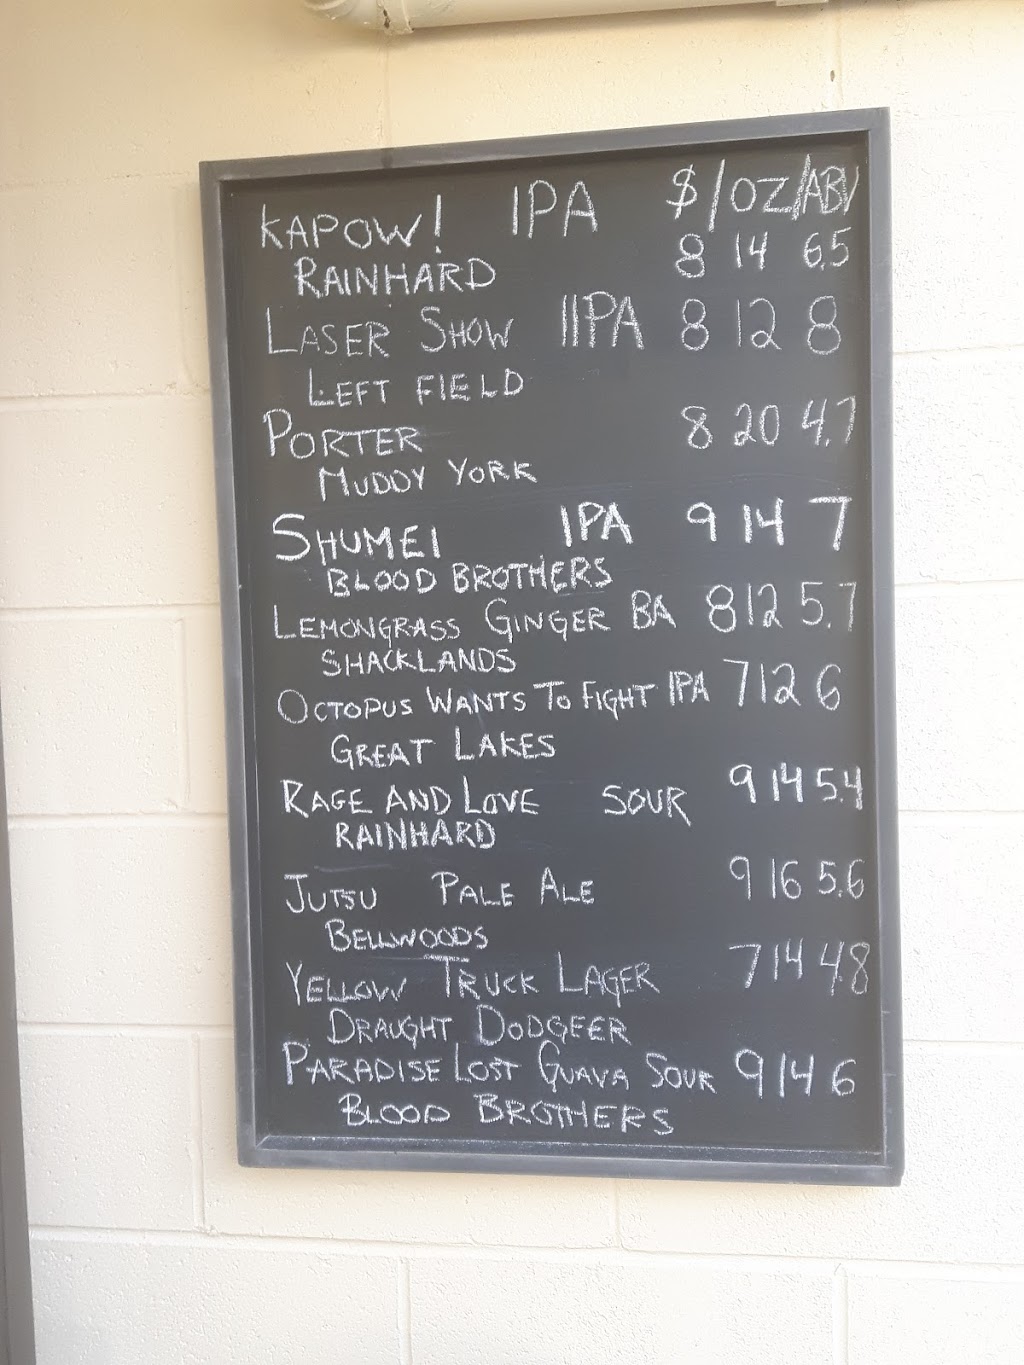 KAPOW! IPA $/OZ/ABV
RAINHARD 8 14 6.5
LASER SHOW IIPA 8 12 8
LEFT FIELD
PORTER 8 20 4.7
MUDDY YORK
SHUMEI IPA 9 14 7
BLOOD BROTHERS
LEMONGRASS GINGER BA 8 12 5.7
SHACKLANDS
OCTOPUS WANTS TO FIGHT IPA 7 12 6
GREAT LAKES
RAGE AND LOVE SOUR 9 14 5.4
RAINHARD
JUTSU PALE ALE 9 16 5.6
BELLWOODS
YELLOW TRUCK LAGER 7 14 4.8
DRAUGHT DODGEER
PARADISE LOST GUAVA SOUR 9 14 6
BLOOD BROTHERS